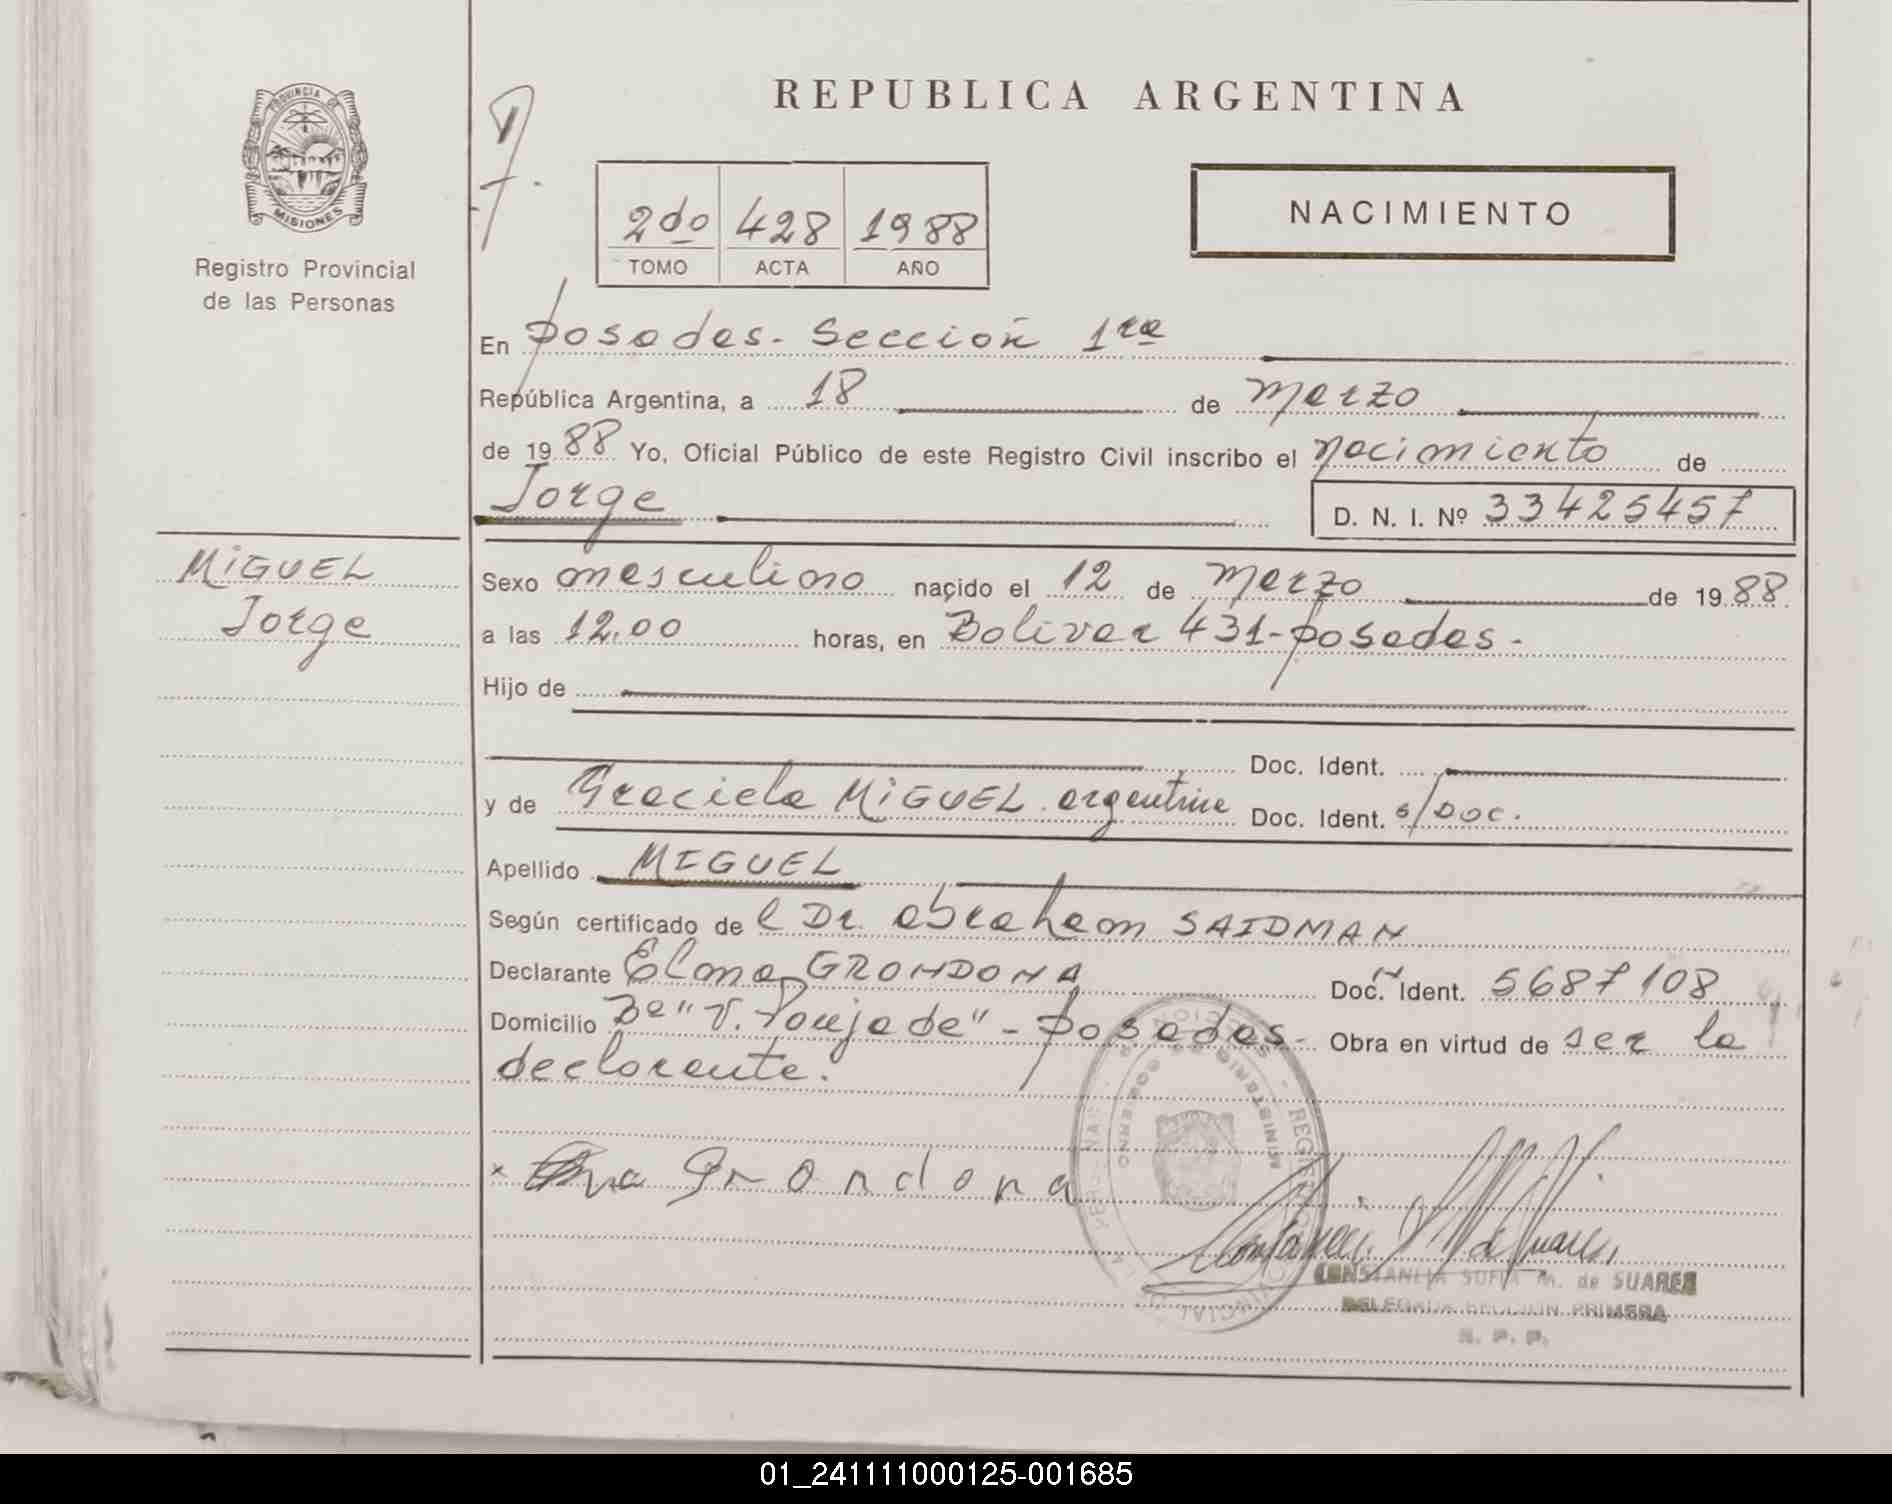 PROVINCIA DE
MISIONES
Registro Provincial
de las Personas
REPUBLICA ARGENTINA
2do 428 1988
TOMO ACTA AÑO
NACIMIENTO
En Posadas - Sección 1ra
República Argentina, a 18 de Marzo
de 1988 Yo, Oficial Público de este Registro Civil inscribo el nacimiento de
Jorge
D. N. I. Nº 33425457
MIGUEL
Jorge
Sexo masculino nacido el 12 de Marzo de 1988
a las 12.00 horas, en Bolivar 431 - Posadas -
Hijo de
Doc. Ident.
y de Graciela MIGUEL argentina Doc. Ident. s/Doc.
Apellido MIGUEL
Según certificado de l Dr. Abraham SAIDMAN
Declarante Elma GRONDONA Doc. Ident. 5687108
Domicilio Bº "V. Poujade" - Posadas - Obra en virtud de ser la
declarante.
x Grondona
MINISTERIO DE GOBIERNO
CONSTANCIA SOFIA M. de SUAREZ
DELEGADA SECCION PRIMERA
R. P. P.
01_241111000125-001685